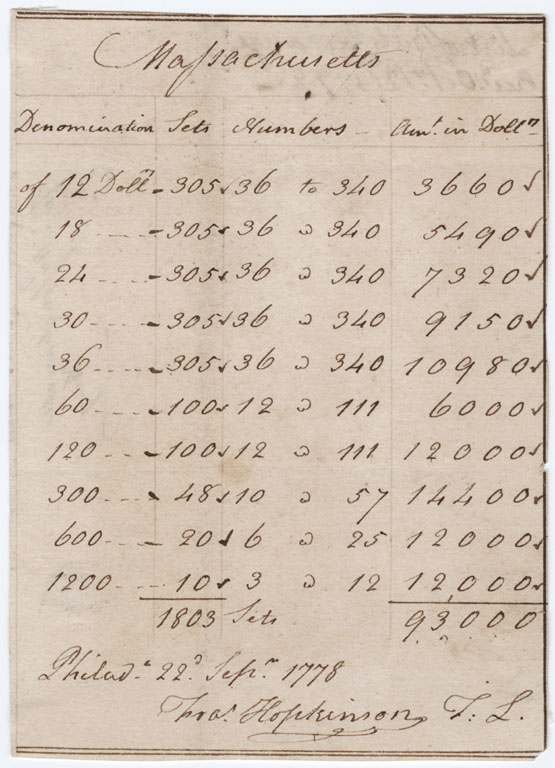 Massachusetts
Denomination Sets Numbers - Am.t in Doll.rs
of 12 Doll.rs - 305 ✓ 36 to 340 3660 ✓
18 - 305 ✓ 36 " 340 5490 ✓
24 - 305 ✓ 36 " 340 7320 ✓
30 - 305 ✓ 36 " 340 9150 ✓
36 - 305 ✓ 36 " 340 10980 ✓
60 - 100 ✓ 12 " 111 6000 ✓
120 - 100 ✓ 12 " 111 12000 ✓
300 - 48 ✓ 10 " 57 14400 ✓
600 - 20 ✓ 6 " 25 12000 ✓
1200 - 10 ✓ 3 " 12 12000 ✓
1803 Sets 93000
Philad.a 22.d Sep.r 1778
Tho.s Hopkinson, T. L.